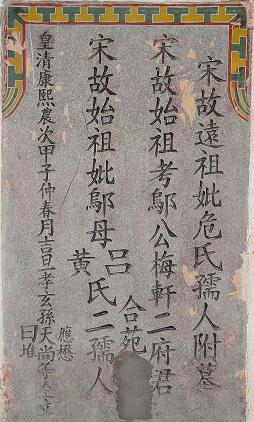 宋故遠祖妣危氏孺人附墓
宋故始祖考鄔公梅軒二府君
合苑
宋故始祖妣鄔母呂黃氏二孺人
皇清康熙歲次甲子仲春月吉旦孝玄孫天尚等仝立
應懋
曰堆